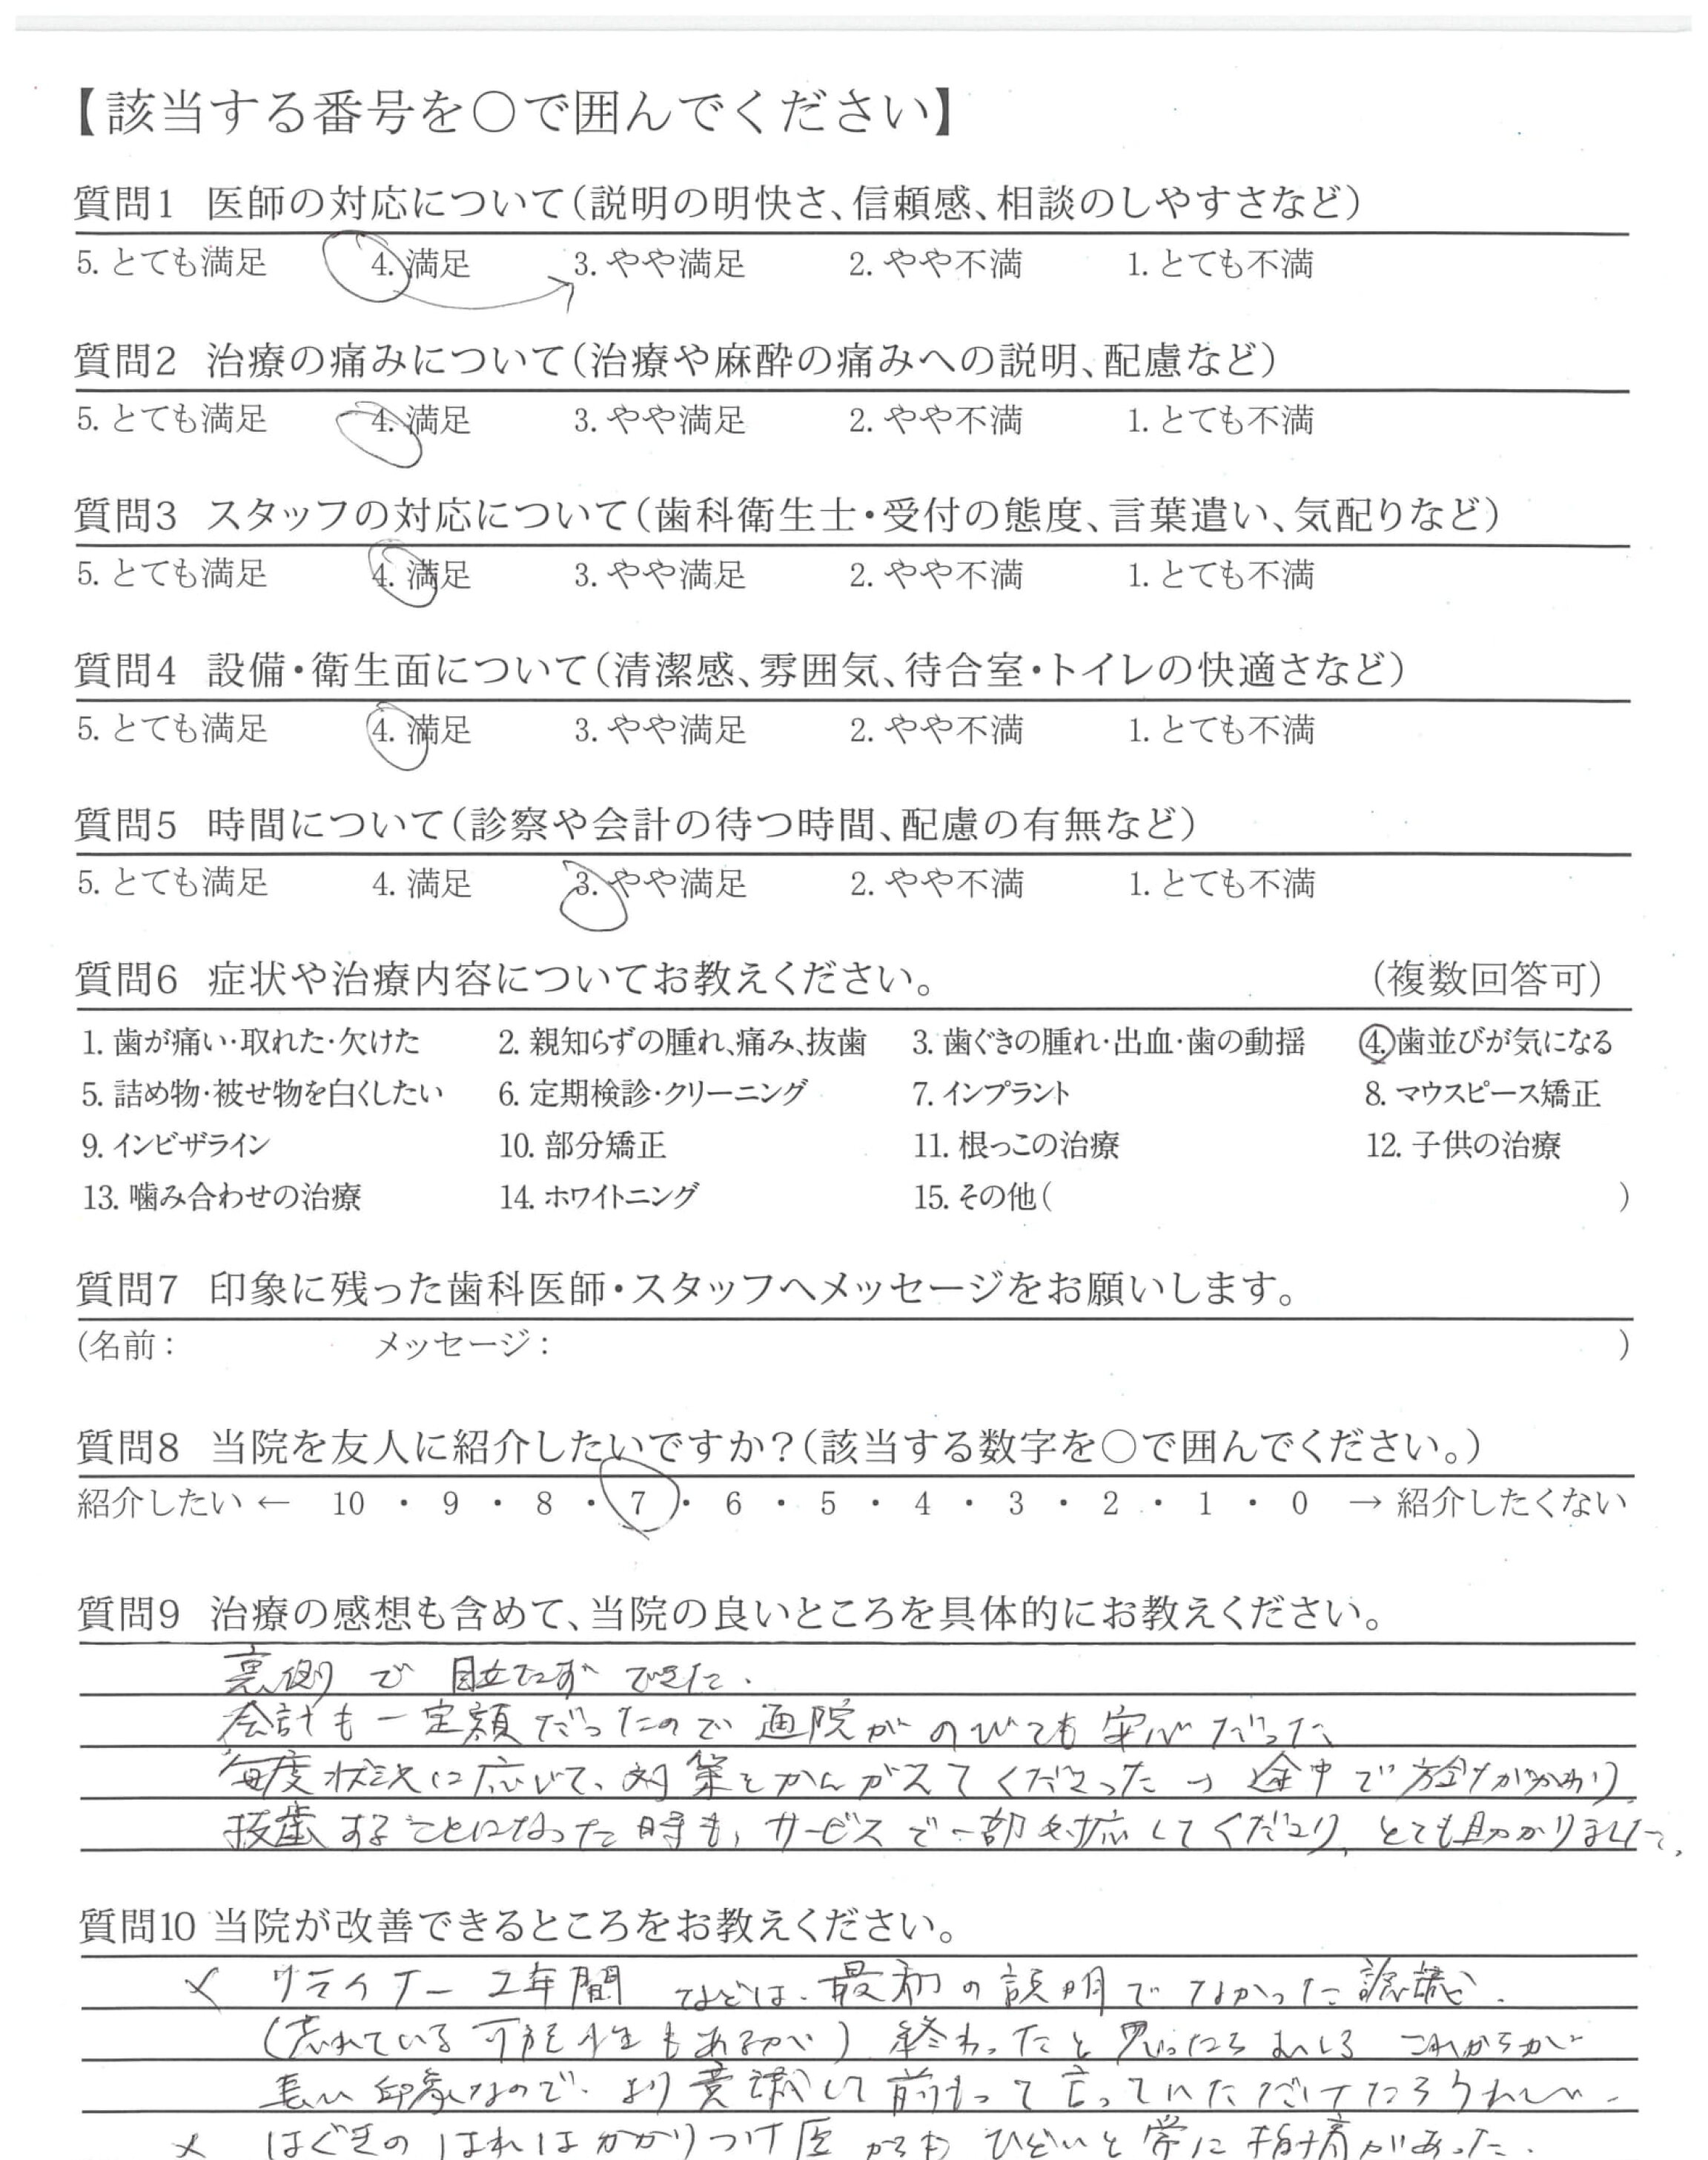 【該当する番号を○で囲んでください】
質問1 医師の対応について(説明の明快さ、信頼感、相談のしやすさなど)
5. とても満足 4. 満足 3. やや満足 2. やや不満 1. とても不満
質問2 治療の痛みについて(治療や麻酔の痛みへの説明、配慮など)
5. とても満足 4. 満足 3. やや満足 2. やや不満 1. とても不満
質問3 スタッフの対応について(歯科衛生士・受付の態度、言葉遣い、気配りなど)
5. とても満足 4. 満足 3. やや満足 2. やや不満 1. とても不満
質問4 設備・衛生面について(清潔感、雰囲気、待合室・トイレの快適さなど)
5. とても満足 4. 満足 3. やや満足 2. やや不満 1. とても不満
質問5 時間について(診察や会計の待つ時間、配慮の有無など)
5. とても満足 4. 満足 3. やや満足 2. やや不満 1. とても不満
質問6 症状や治療内容についてお教えください。 (複数回答可)
1. 歯が痛い・取れた・欠けた 2. 親知らずの腫れ、痛み、抜歯 3. 歯ぐきの腫れ・出血・歯の動揺 4. 歯並びが気になる
5. 詰め物・被せ物を白くしたい 6. 定期検診・クリーニング 7. インプラント 8. マウスピース矯正
9. インビザライン 10. 部分矯正 11. 根っこの治療 12. 子供の治療
13. 噛み合わせの治療 14. ホワイトニング 15. その他( )
質問7 印象に残った歯科医師・スタッフへメッセージをお願いします。
(名前: メッセージ: )
質問8 当院を友人に紹介したいですか?(該当する数字を○で囲んでください。)
紹介したい ← 10 ・ 9 ・ 8 ・ 7 ・ 6 ・ 5 ・ 4 ・ 3 ・ 2 ・ 1 ・ 0 → 紹介したくない
質問9 治療の感想も含めて、当院の良いところを具体的にお教えください。
裏側で目立たずできた.
会計も一定額だったので通院がのびても安心だった
毎度状況に応じて、対策をかんがえてくださった → 途中で方針がかわり、
抜歯することになった時も、サービスで一部を対応してくださり、とても助かりました。
質問10 当院が改善できるところをお教えください。
× リテイナー2年間 などは、最初の説明でなかった認識.
(忘れている可能性もあるが) 終わったと思ったらむしろこれからが
長い印象なので、より意識して前もって言っていただけたらうれしい.
× はぐきのはれはかかりつけ医からもひどいと常に指摘があった.